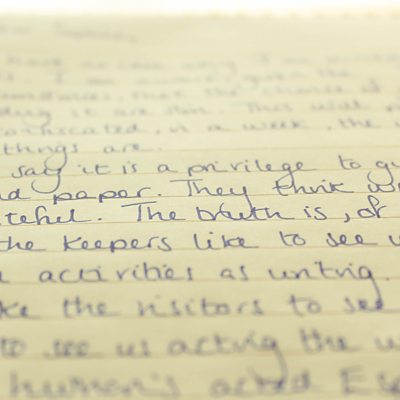 I am aware, given the
that the chance of
it are slim. This will
confiscated, in a week, the
things are.
say it is a privilege to g
nd paper. They think w
teful. The truth is, of
the keepers like to see u
activities as writing.
ke the visitors to see
to see us acting the w
human's acted